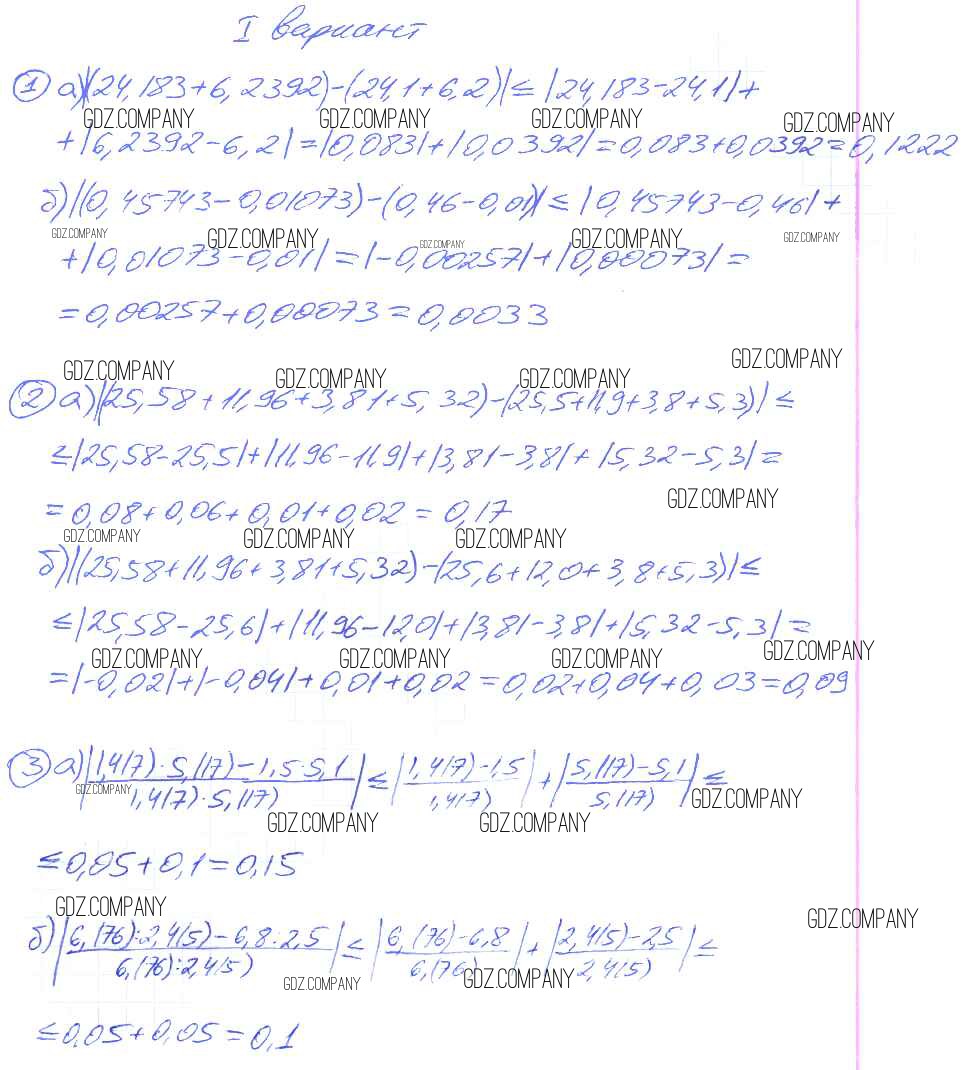 I вариант
1 а) |(24,183+6,2392)-(24,1+6,2)| ≤ |24,183-24,1|+
GDZ.COMPANY GDZ.COMPANY GDZ.COMPANY GDZ.COMPANY
+|6,2392-6,2|=|0,083|+|0,0392|=0,083+0,0392=0,1222
б) |(0,45743-0,01073)-(0,46-0,01)| ≤ |0,45743-0,46|+
GDZ.COMPANY GDZ.COMPANY GDZ.COMPANY GDZ.COMPANY GDZ.COMPANY
+|0,01073-0,01|=|-0,00257|+|0,00073|=
=0,00257+0,00073=0,0033
GDZ.COMPANY GDZ.COMPANY GDZ.COMPANY GDZ.COMPANY
2 а) |(25,58+11,96+3,81+5,32)-(25,5+11,9+3,8+5,3)| ≤
≤|25,58-25,5|+|11,96-11,9|+|3,81-3,8|+|5,32-5,3|=
GDZ.COMPANY
=0,08+0,06+0,01+0,02=0,17
GDZ.COMPANY GDZ.COMPANY GDZ.COMPANY
б) |(25,58+11,96+3,81+5,32)-(25,6+12,0+3,8+5,3)| ≤
≤|25,58-25,6|+|11,96-12,0|+|3,81-3,8|+|5,32-5,3|=
GDZ.COMPANY GDZ.COMPANY GDZ.COMPANY GDZ.COMPANY
=|-0,02|+|-0,04|+0,01+0,02=0,02+0,04+0,03=0,09
3 а) |1,4(7)·5,(17)-1,5·5,1| ≤ |1,4(7)-1,5|+|5,(17)-5,1| ≤
1,4(7)·5,(17) 1,4(7) 5,(17)
GDZ.COMPANY GDZ.COMPANY
GDZ.COMPANY GDZ.COMPANY
≤0,05+0,1=0,15
GDZ.COMPANY GDZ.COMPANY
б) |6,(76):2,4(5)-6,8·2,5| ≤ |6,(76)-6,8|+|2,4(5)-2,5| ≤
6,(76):2,4(5) 6,(76) 2,4(5)
GDZ.COMPANY GDZ.COMPANY
≤0,05+0,05=0,1